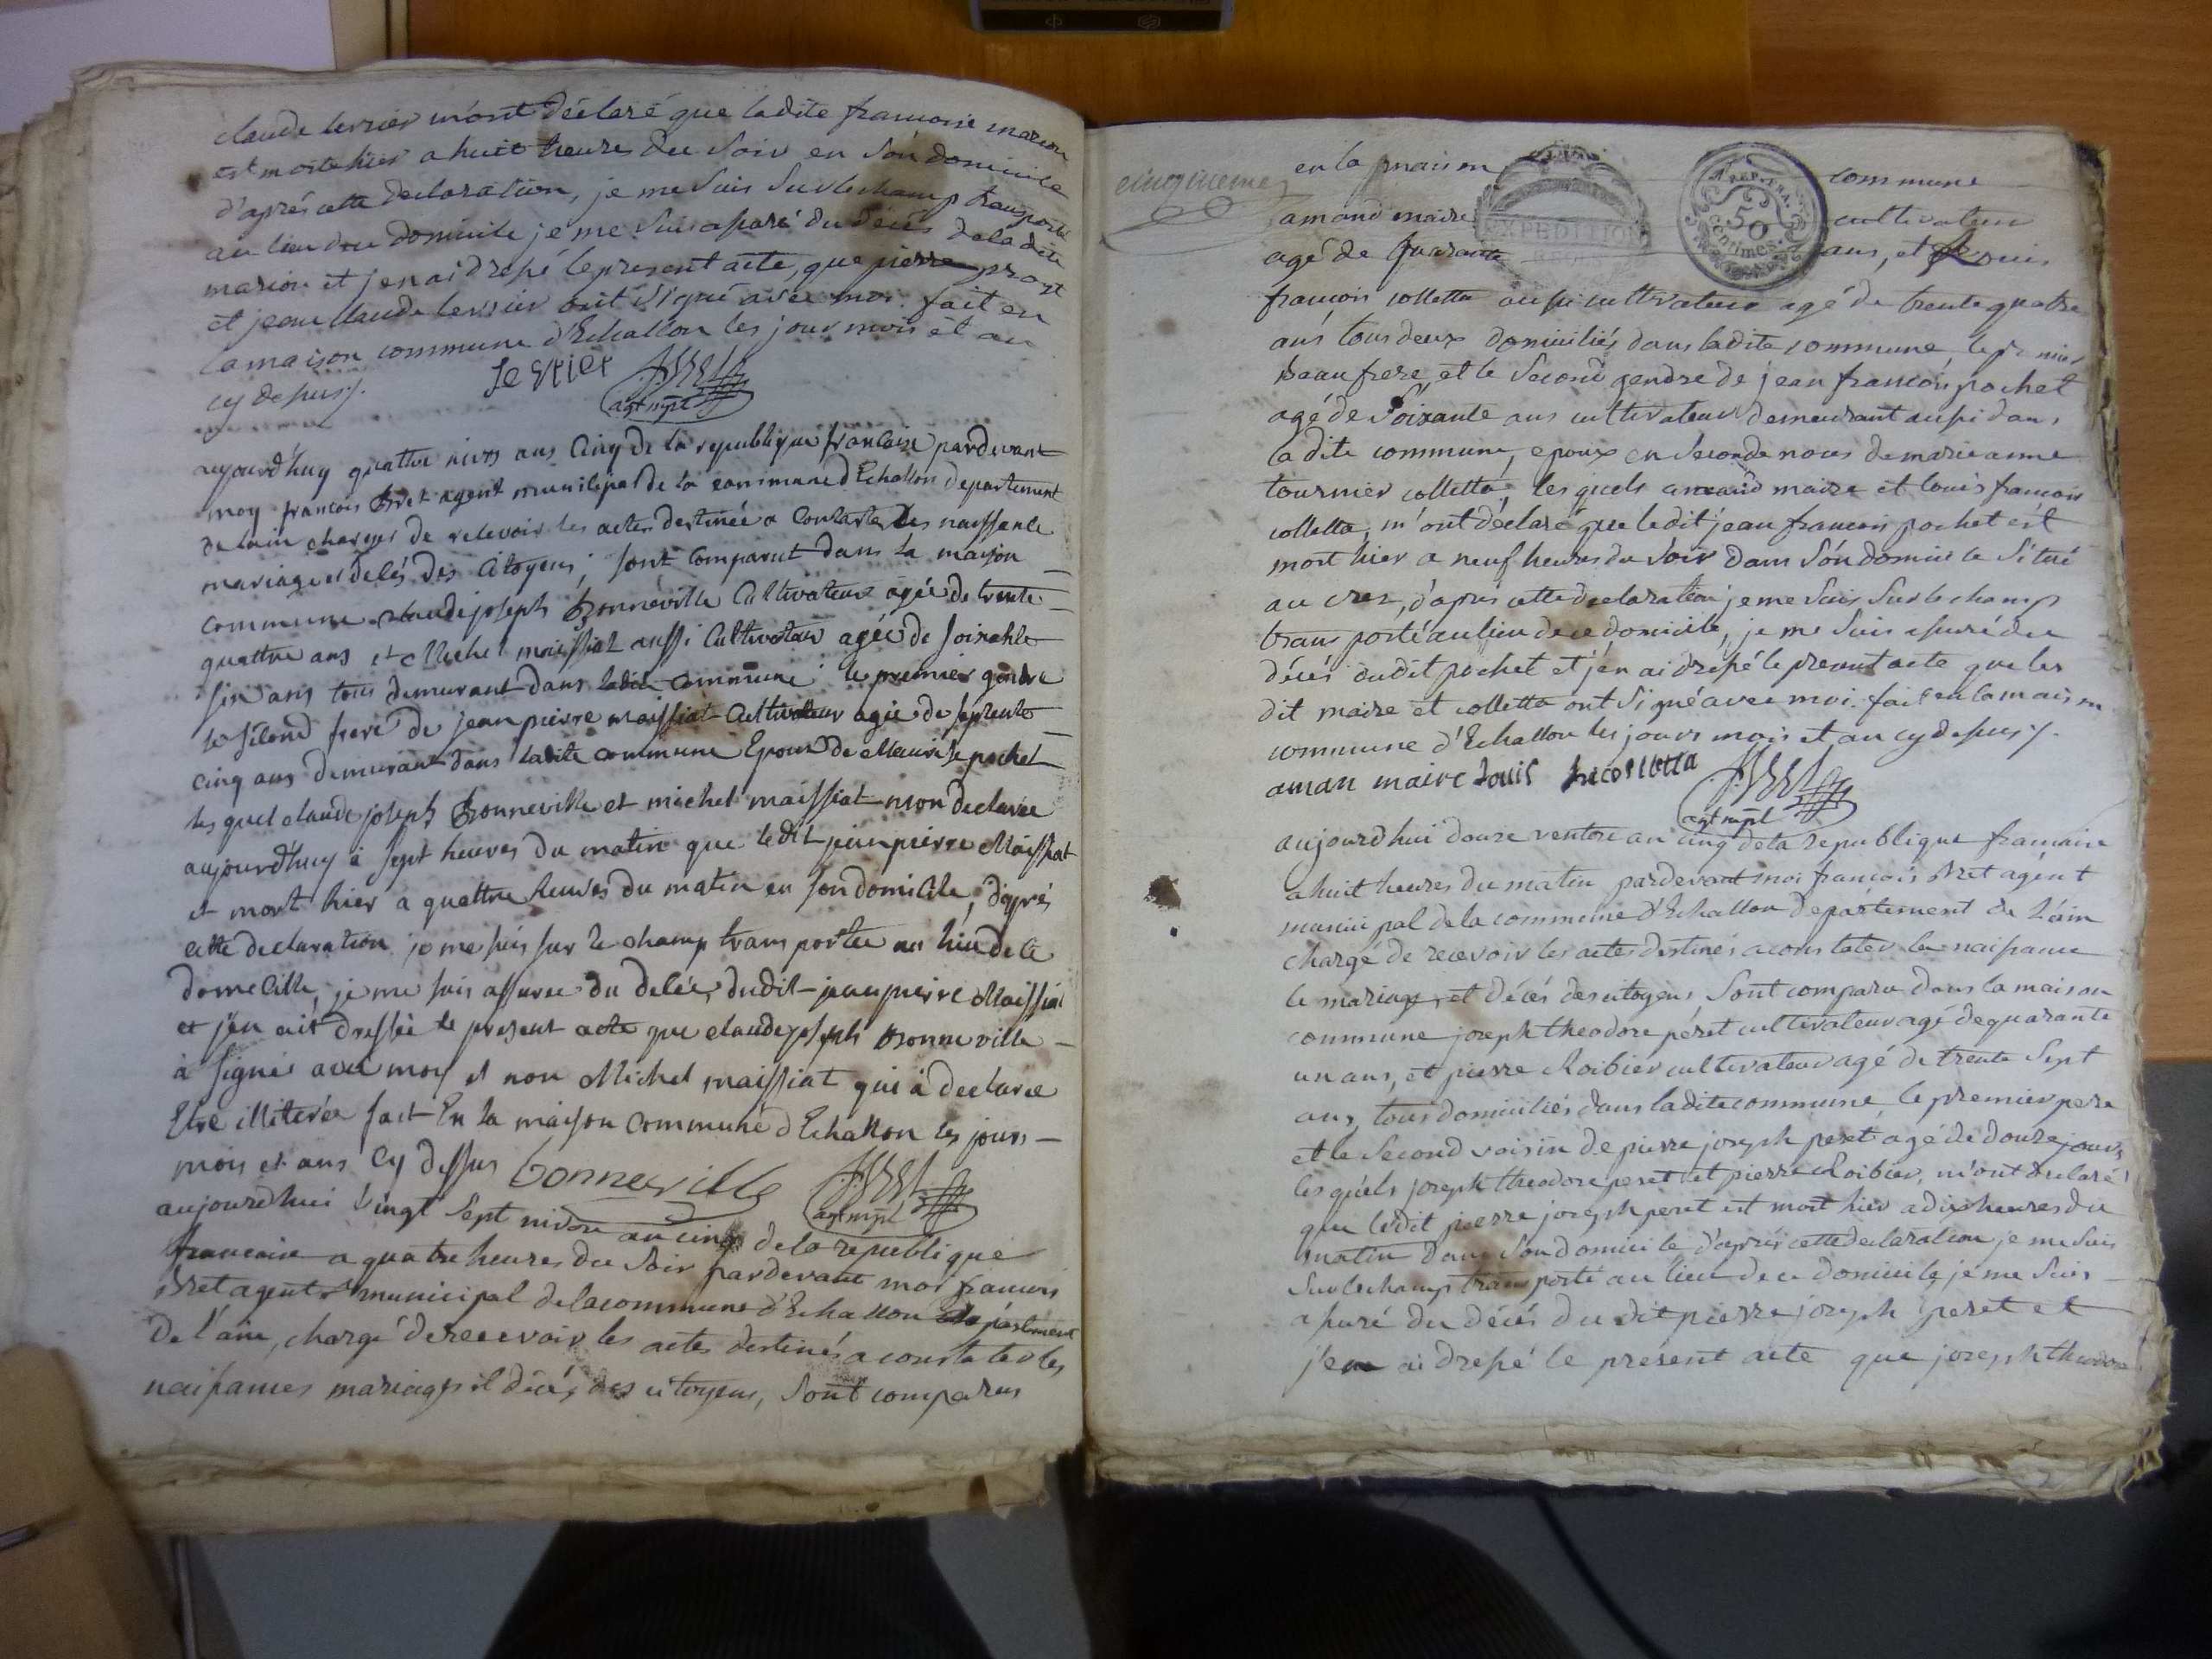 claude lerrier m'ont déclaré que ladite francoise marion
est morte hier a huit heures du Soir en Son domicile
d'après cette declaration, je me Suis Surlechamp transporté
au lieu dudomicile je me Suis assuré du décés deladite
marion et jenai dressé lepresent acte, que pierre prost
et jean claude lerrier ont Signé avec moi. fait en
lamaison commune d'Echallon les jour mois et an
cy dessus
agt mpl
aujourd'huy quattre nivos ans Cinq de la republique francaise pardevant
moy francois Bret agent municipal de la commune d Echallon departement
de lain charger de recevoir les actes destinée a Constater les naissance
mariage et delés des Citoyens, sont Comparut dans la maison
commune claude joseph Bonneville Cultivateur agée de trente
quattre ans et Michel maissiat aussi Cultivateur agée de soixente
six ans tous demurant dans ladite commune le premier gendre
le second frere de jean pierre maissiat Cultivateur agée de septente
cinq ans demurant dans ladite commune Epoux de pochet
les quel claude joseph Bonneville et michel maissiat mon declarée
aujourd'huy à sept heures du matin que ledit jeanpierre Maissiat
et mort hier a quattre heures du matin en son domicile, d'après
cette declaration je me suis sur le champ trans portée au lieu de ce
domecille, je me suis assuree du delée, dudit jeanpierre Maissiat
et j'en ait dressée le present acte que claude joseph Bonneville
à signée avec moy et non Michel maissiat qui à declaree
Etre illiterée fait En la maison Commune d Echallon les jours
mois et ans Cy dessus bonneville
agt mpl
aujourdhui vingt Sept nivose an cinq dela republique
francaise a quatre heures du Soir pardevant moi francois
Bret agent municipal delacommune d'Echallon département
De l'ain, chargé derecevoir les actes destinés a constater les
naissances mariages et décés des citoyens, Sont comparus
cinquieme
en la maison commune
amand maire cultivateur
agé de quarante ans, et
francois colletta aussi cultivateur agé de trente quatre
ans tous deux domiciliés dans ladite commune, le premier
Beaufrere et le Second gendre de jean francois pochet
agé de Soixante ans cultivateur demeurant aussi dans
ladite commune, epoux en Seconde noces demarieanne
tournier colletta, les quels amand maire et louis francois
colletta, m'ont déclaré que ledit jean francois pochet est
mort hier a neuf heures du Soir dans Son domicile Situé
au crez, d'après cette declaration je me Suis Sur le champ
trans porté au lieu de ce domicile, je me Suis assuré du
décés dudit pochet et j'en ai dressé le present acte que les
dit maire et colletta ont Signé avec moi. fait en la maison
commune d'Echallon les jours mois et an cy dessus
aman maire Louis
agt mpl
aujourdhui douze ventose an cinq dela republique francaise
a huit heures du matin pardevant moi francois Bret agent
municipal de la commune d'Echallon departement de l'ain
chargé de recevoir les actes destinés a constater la naissance
le mariage, et décés des citoyens, Sont comparu dans la maison
commune joseph theodore péret cultivateur agé de quarante
un ans, et pierre Roibier cultivateur agé de trente Sept
ans, tous domiciliés dans ladite commune, le premier pere
et le Second voisin de pierre joseph peret agé de douze jours,
lesquels joseph theodore peret et pierre Roibier, m'ont declaré
que ledit pierre joseph peret est mort hier a dix heures du
matin dans Son domicile d'après cette declaration je me Suis
Sur le champ transporté au lieu de ce domicile, je me Suis
assuré du décés du dit pierre joseph peret et
j'en ai dressé le présent acte que joseph theodore
EXPEDITION
REP. FRA.
50
centimes.